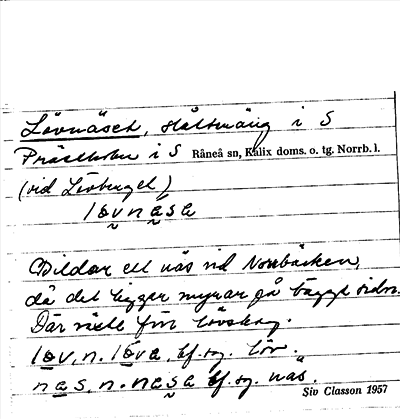 Lövnäset, slåttmäng i S
Prästholm i S Råneå sn, Kalix doms. o. tg. Norrb. l.
(vid Lövberget)
lövnäsa
Bildar ett näs vid Norrbäcken,
då det ligger myrar på bägge sidor.
Där växte förr lövskog.
löv, n. löva, bf. sg. löv.
näs, n. näsa bf. sg. näs.
Siv Classon 1957